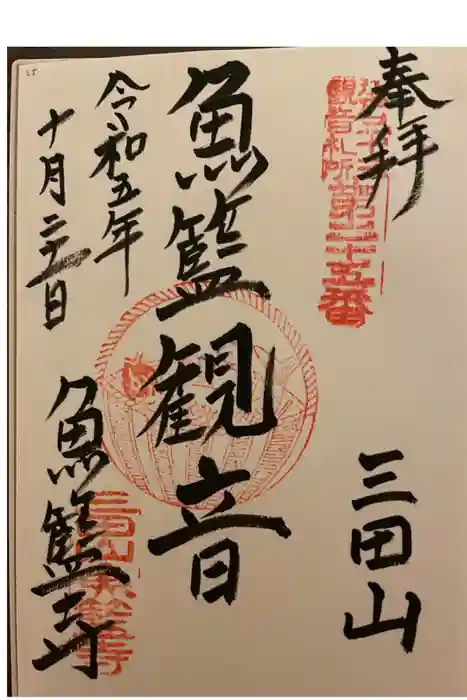 奉拝
三田山
魚籃観音
令和五年
十月二十一日
魚籃寺
観音札所第二十五番
三田山魚籃寺